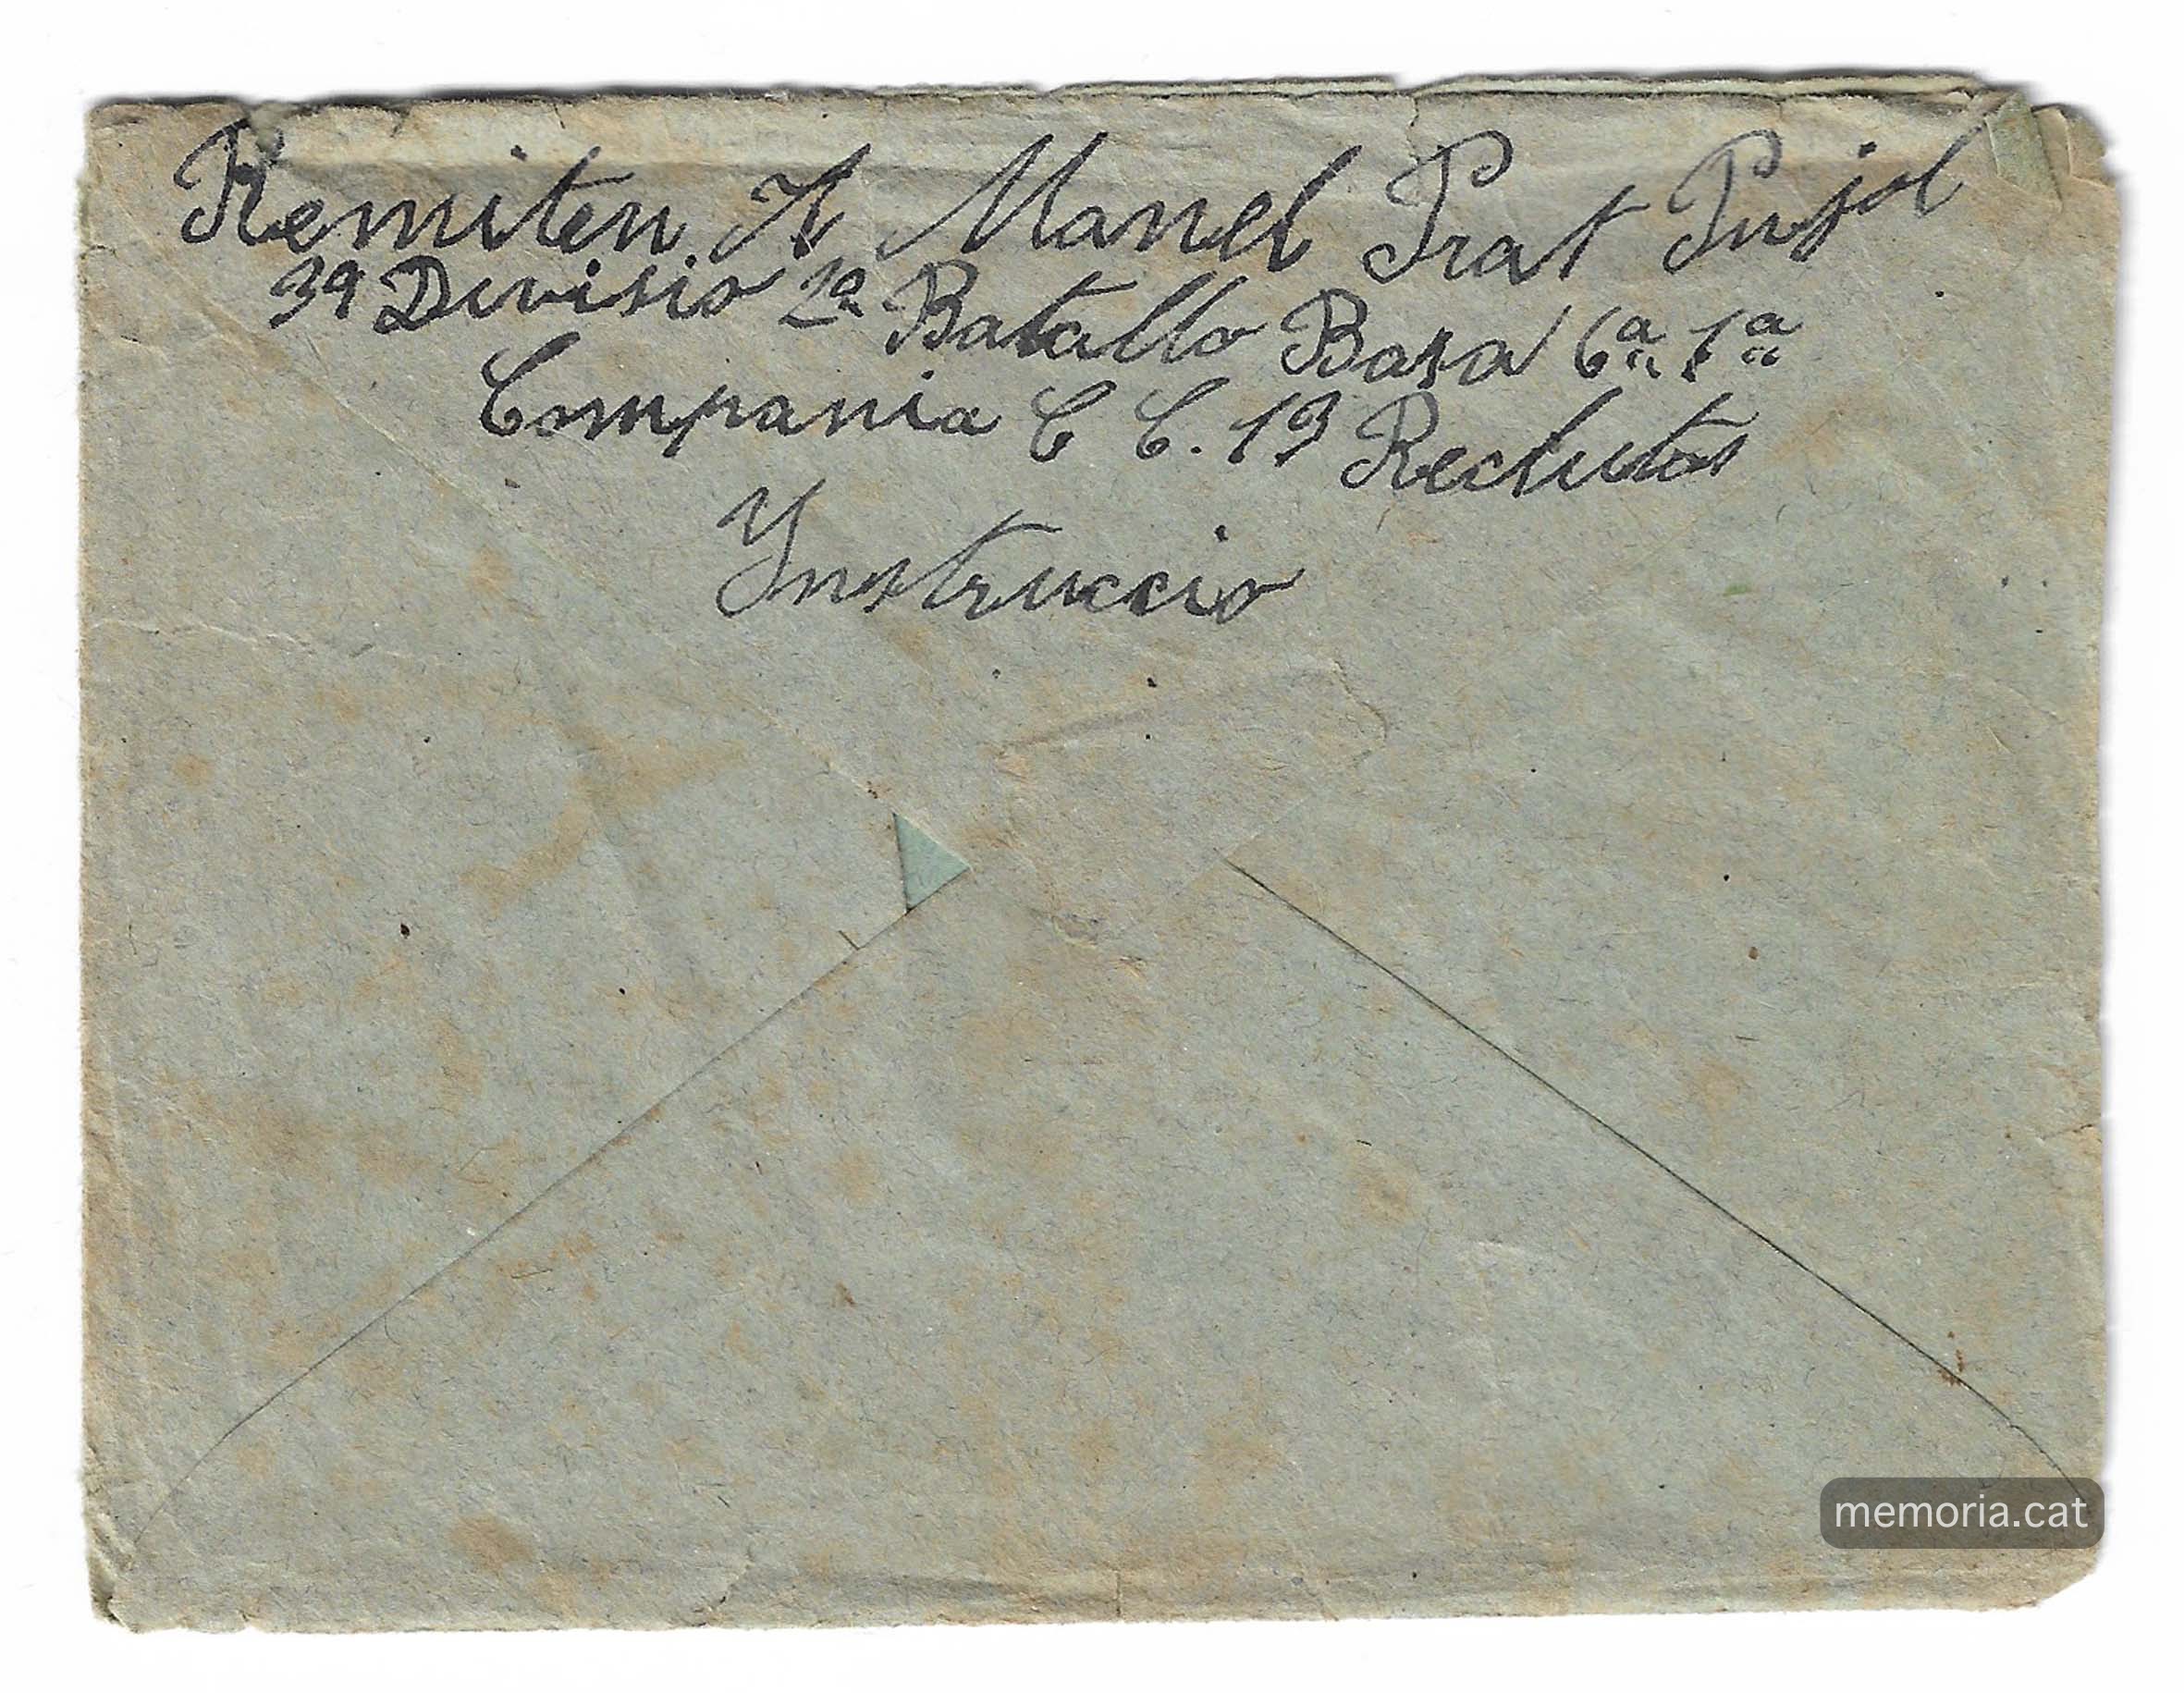 Remiten Manel Prat Pujol
39 Divisio 2ª Batallo Basa 6ª 1ª
Compania C C. 13 Reclutas
Ynstruccio
memoria.cat